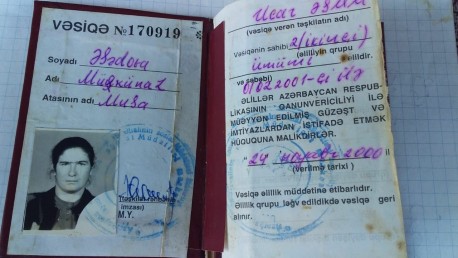 VƏSİQƏ №170919
Soyadı Әһәдова
Adı
Atasının adı Муса
imzası)
M.Y.
Ucar
(vəsiqə verən təşkilatın adı)
Vəsiqənin sahibi 2(ikinci)
(əlilliyin qrupu
ümumi əlildir.
və səbəbi)
ƏLİLLƏR AZƏRBAYCAN RESPUB-
LİKASININ QANUNVERİCİLİYİ İLƏ
MÜƏYYƏN EDİLMİŞ GÜZƏŞT VƏ
İMTİYAZLARDAN İSTİFADƏ ETMƏK
HÜQUQUNA MALİKDİRLƏR.
"24 2000 il
(verilmə tarixi)
Vəsiqə əlillik müddətinə etibarlıdır.
Əlillik qrupu ləğv edildikdə vəsiqə geri
alınır.